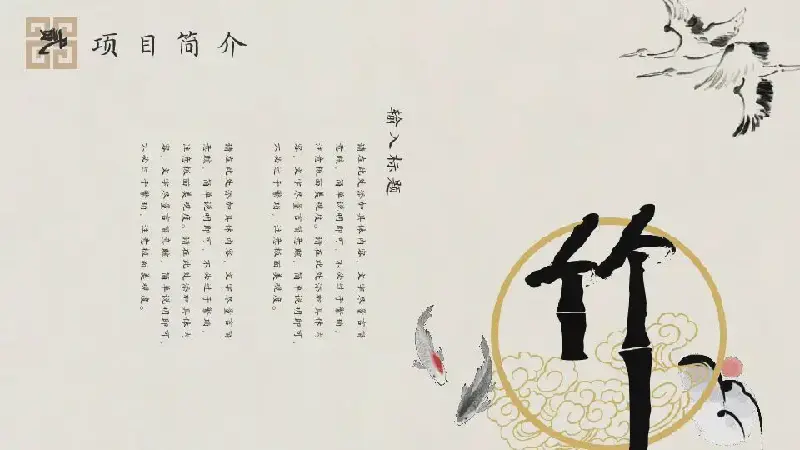 贰
项目简介
输入标题
请在此处添加具体内容，文字尽量言简
意赅，简单说明即可，不必过于繁琐，
注意板面美观度。请在此处添加具体内
容，文字尽量言简意赅，简单说明即可，
不必过于繁琐，注意板面美观度。
请在此处添加具体内容，文字尽量言简
意赅，简单说明即可，不必过于繁琐，
注意板面美观度。请在此处添加具体内
容，文字尽量言简意赅，简单说明即可，
不必过于繁琐，注意板面美观度。
竹